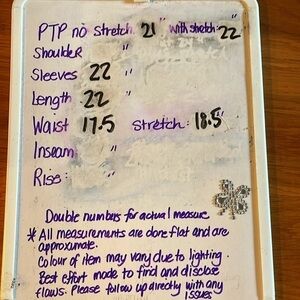 PTP no stretch: 21" with stretch: 22"
Shoulder "
Sleeves 22 "
Length 22 "
Waist 17.5 Stretch: 18.5"
Inseam "
Rise: "
Double numbers for actual measure
* All measurements are done flat and are
approximate.
Colour of item may vary due to lighting.
Best effort made to find and disclose
flaws. Please follow up directly with any
issues